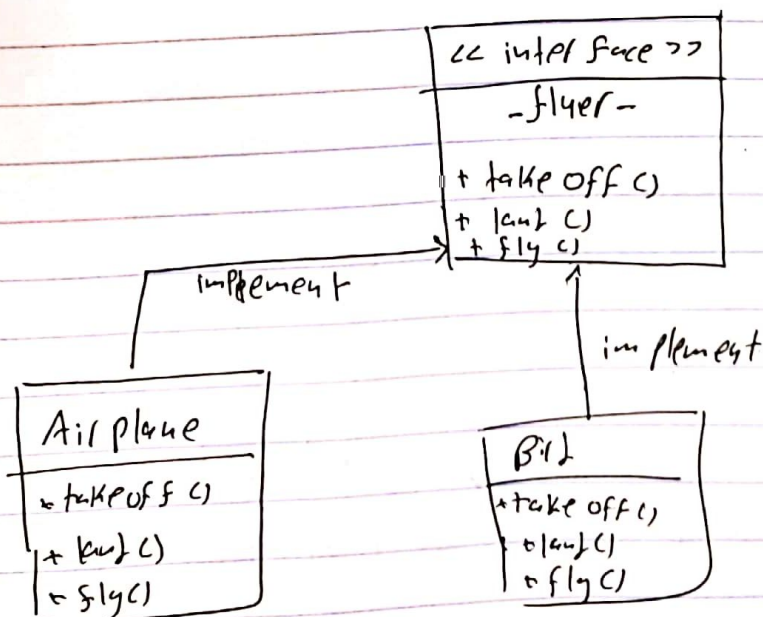 << interface >>
- flyer -
+ take off ()
+ land ()
+ fly ()
implement
implement
Airplane
+ takeoff ()
+ land ()
+ fly ()
Bird
+ take off ()
+ land ()
+ fly ()